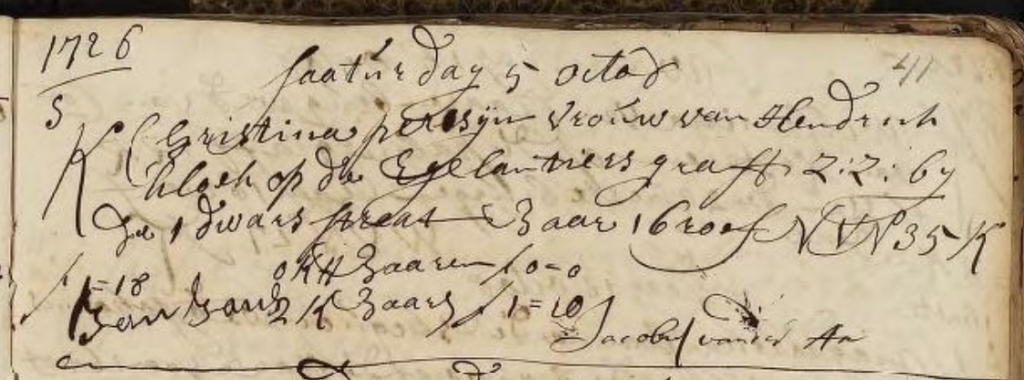 1726
saaturdag 5 octob
41
5
K Christina persijn vrouw van Hendrik
Kloek op de Egelantiers graft Z:Z: by
de 1 dwars straat Baar 16 roef NVN 35 K
f 1=18 0 KH Baaren f 0=0
2 K Baars f 1=10
Jacobus vander Aa